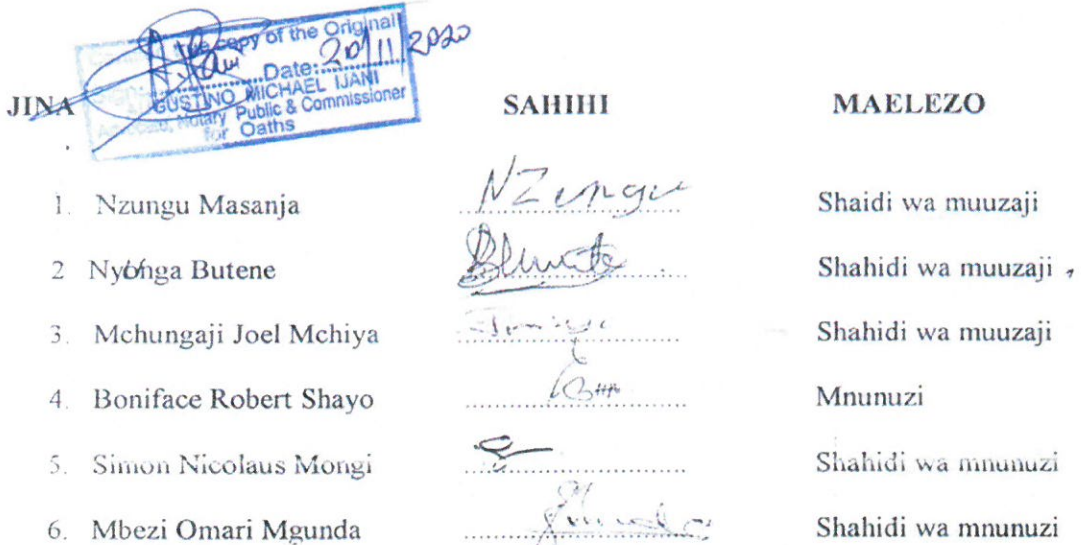 true copy of the Original
Date: 20/11/2020
GUSTINO MICHAEL IJANI
Advocate, Notary Public & Commissioner
for Oaths
JINA SAHIHI MAELEZO
1. Nzungu Masanja NZungu Shaidi wa muuzaji
2 Nyonga Butene Shahidi wa muuzaji
3. Mchungaji Joel Mchiya Shahidi wa muuzaji
4. Boniface Robert Shayo Mnunuzi
5. Simon Nicolaus Mongi Shahidi wa mnunuzi
6. Mbezi Omari Mgunda Shahidi wa mnunuzi